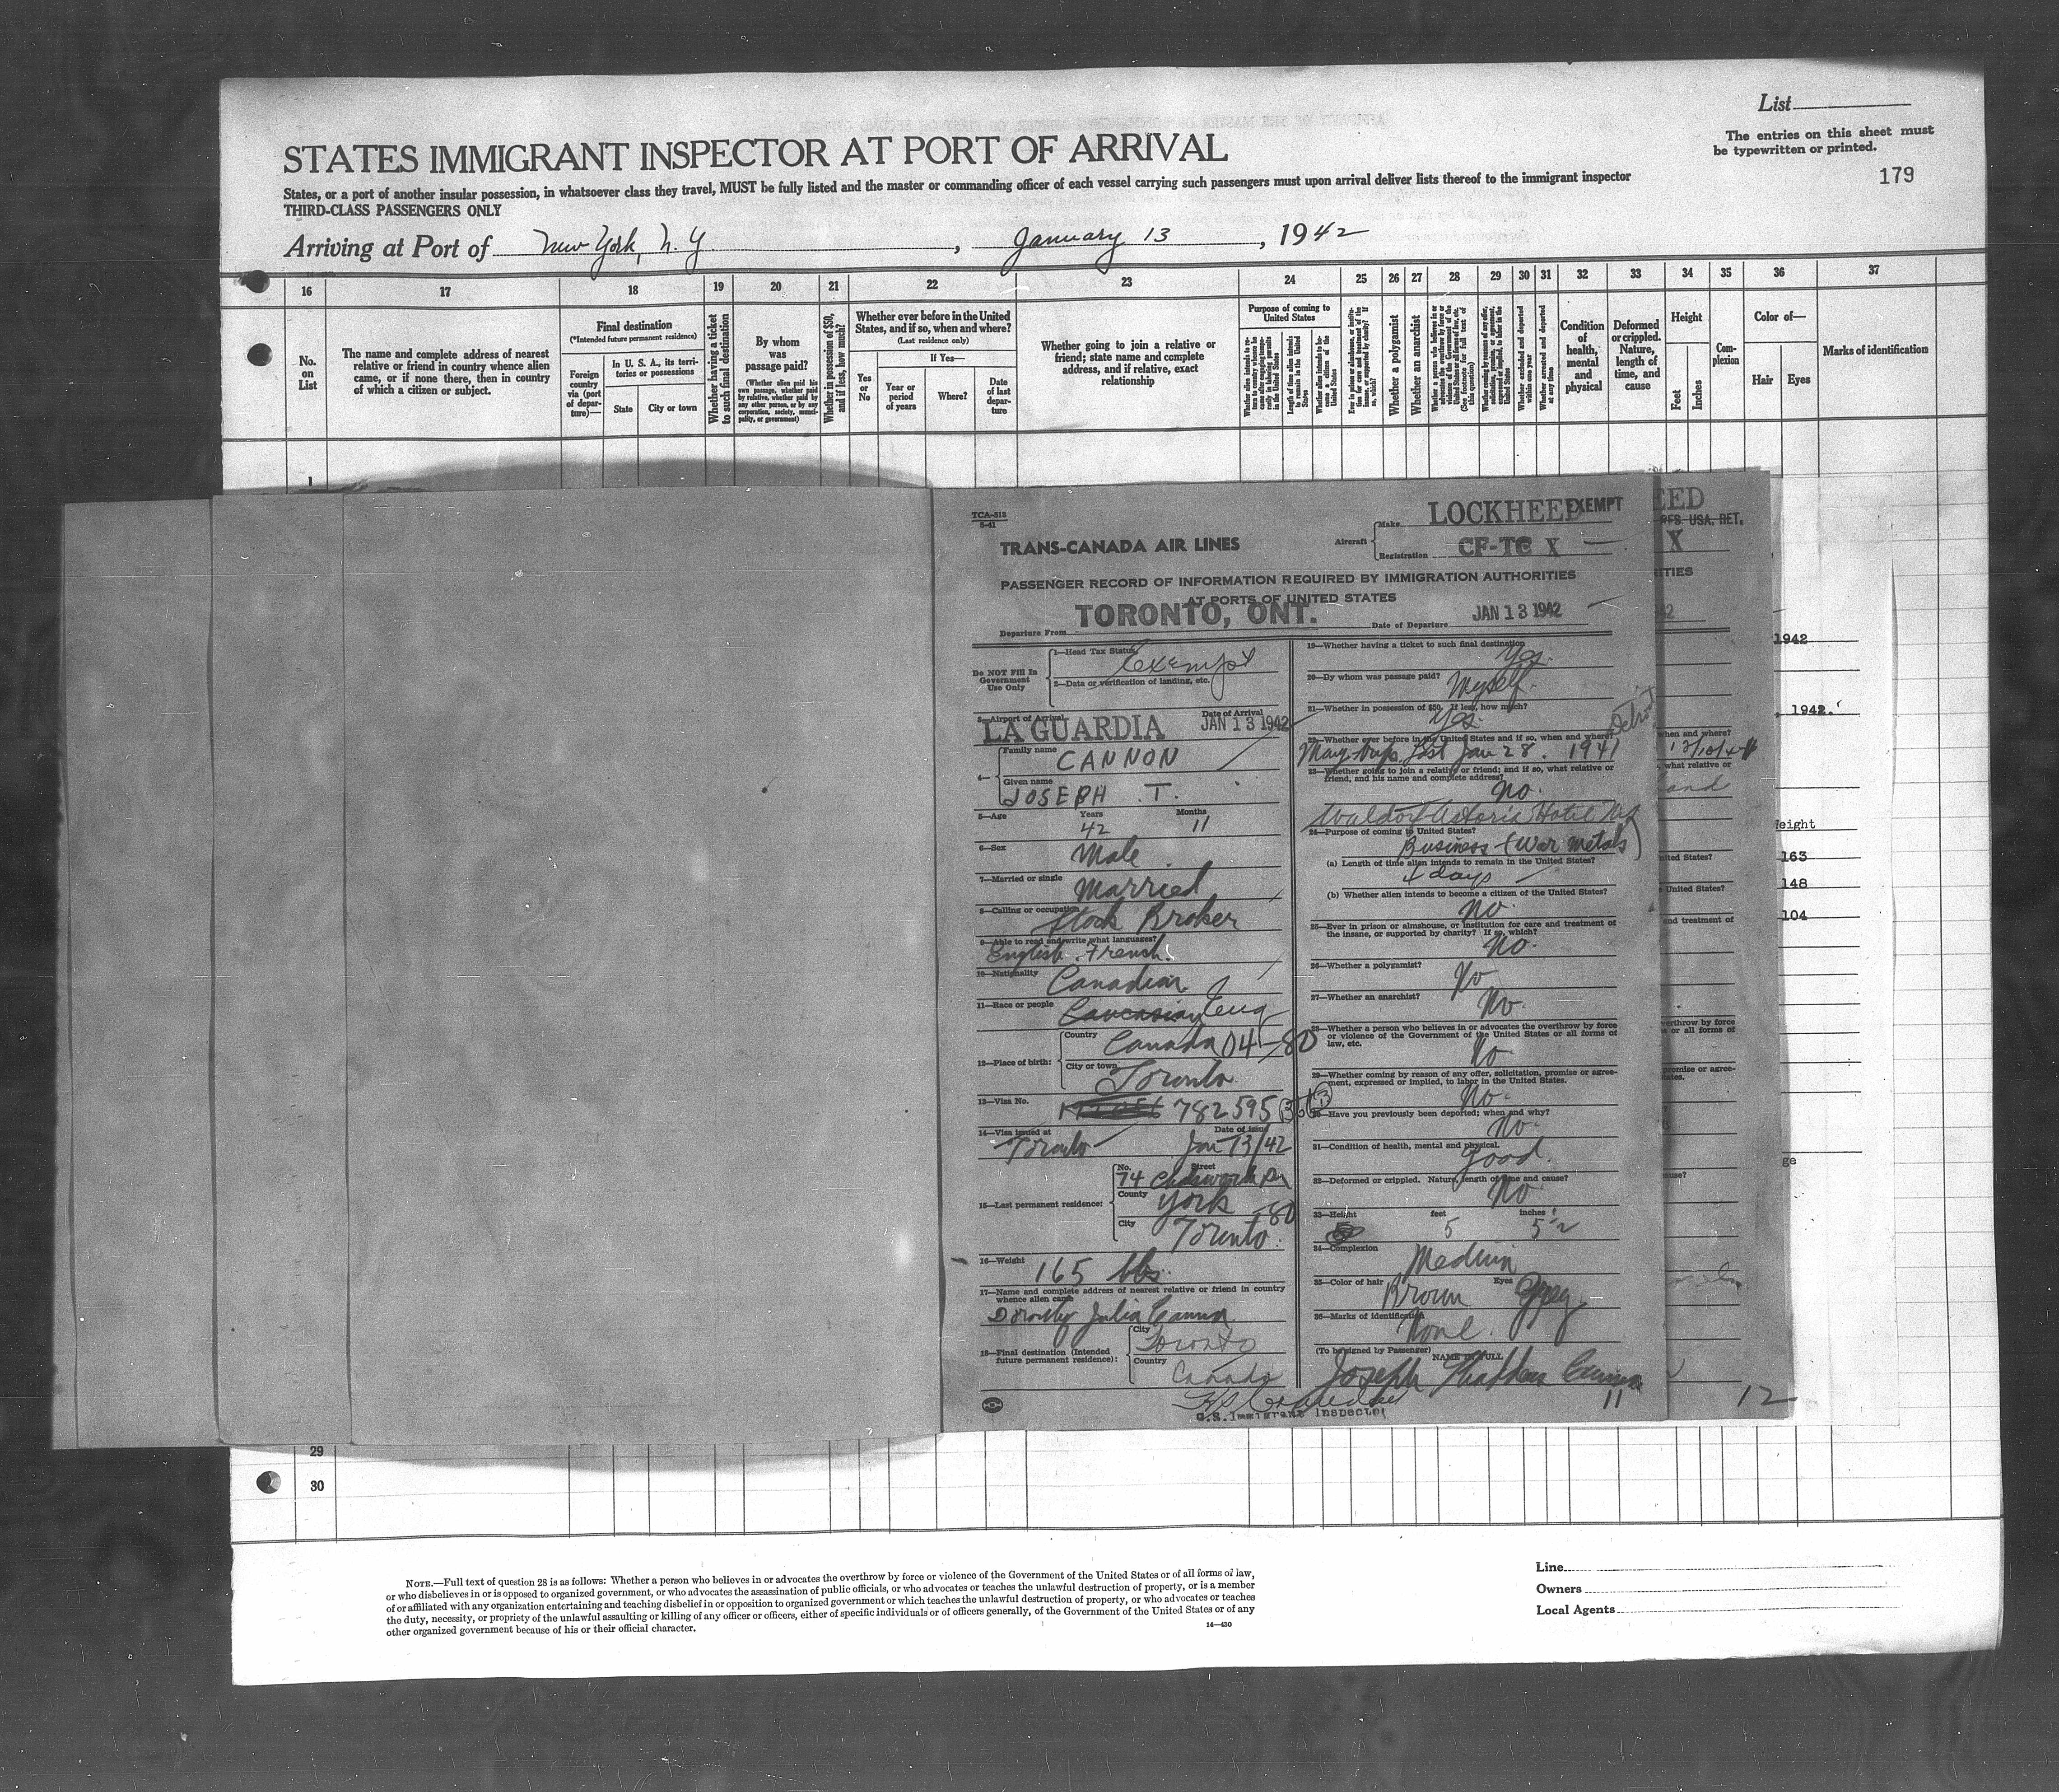 List
The entries on this sheet must
be typewritten or printed.
179
STATES IMMIGRANT INSPECTOR AT PORT OF ARRIVAL
States, or a port of another insular possession, in whatsoever class they travel, MUST be fully listed and the master or commanding officer of each vessel carrying such passengers must upon arrival deliver lists thereof to the immigrant inspector
THIRD-CLASS PASSENGERS ONLY
Arriving at Port of New York, N.Y , January 13 , 1942
16 17 18 19 20 21 22 23 24 25 26 27 28 29 30 31 32 33 34 35 36 37
No.
on
List
The name and complete address of nearest
relative or friend in country whence alien
came, or if none there, then in country
of which a citizen or subject.
Final destination
(*Intended future permanent residence)
Foreign
country
via (port
of depar-
ture)—
In U. S. A., its terri-
tories or possessions
State
City or town
Whether having a ticket
to such final destination
By whom
was
passage paid?
(Whether alien paid his
own passage, whether paid
by relative, whether paid
by any other person, or by any
corporation, society, munici-
pality, or government)
Whether in possession of $50,
and if less, how much?
Whether ever before in the United
States, and if so, when and where?
(Last residence only)
Yes
or
No
If Yes—
Year or
period
of years
Where?
Date
of last
depar-
ture
Whether going to join a relative or
friend; state name and complete
address, and if relative, exact
relationship
Purpose of coming to
United States
Length of time alien intends
to remain in the United
States
Whether a polygamist
Whether an anarchist
Condition
of
health,
mental
and
physical
Deformed
or crippled.
Nature,
length of
time, and
cause
Height
Feet
Inches
Com-
plexion
Color of—
Hair
Eyes
Marks of identification
1
TCA-518
5-41
TRANS-CANADA AIR LINES
Aircraft
Make LOCKHEED EXEMPT
Registration CF-TC X
PASSENGER RECORD OF INFORMATION REQUIRED BY IMMIGRATION AUTHORITIES
AT PORTS OF UNITED STATES
Departure From TORONTO, ONT.
Date of Departure JAN 13 1942
Do NOT Fill In
Government
Use Only
1—Head Tax Status Exempt
2—Data or verification of landing, etc.
3—Airport of Arrival LA GUARDIA
Date of Arrival JAN 13 1942
4—
Family name CANNON
Given name JOSEPH . T.
5—Age Years 42 Months 11
6—Sex Male
7—Married or single Married
8—Calling or occupation Stock Broker
9—Able to read and write what languages?
English. French.
10—Nationality Canadian
11—Race or people Caucasian Eng
12—Place of birth:
Country Canada 04-80
City or town Toronto
13—Visa No. 782595
14—Visa issued at Toronto
Date of issue Jan 13/42
15—Last permanent residence:
No. 74 Street
County York -80
City Toronto.
16—Weight 165 lbs.
17—Name and complete address of nearest relative or friend in country
whence alien came
Dorothy Julia Cannon
18—Final destination (Intended
future permanent residence):
City Toronto
Country Canada
U.S. Immigrant Inspector
19—Whether having a ticket to such final destination Yes.
20—By whom was passage paid? Myself.
21—Whether in possession of $50. If less, how much?
Yes.
Detroit
22—Whether ever before in the United States and if so, when and where?
Many trips. Last Jan 28. 1941
23—Whether going to join a relative or friend; and if so, what relative or
friend, and his name and complete address?
No.
Waldorf Astoria Hotel NY
24—Purpose of coming to United States?
Business (War metals)
(a) Length of time alien intends to remain in the United States?
4 days
(b) Whether alien intends to become a citizen of the United States?
No.
25—Ever in prison or almshouse, or institution for care and treatment of
the insane, or supported by charity? If so, which?
No.
26—Whether a polygamist? No
27—Whether an anarchist? No.
28—Whether a person who believes in or advocates the overthrow by force
or violence of the Government of the United States or all forms of
law, etc. No
29—Whether coming by reason of any offer, solicitation, promise or agree-
ment, expressed or implied, to labor in the United States.
No.
30—Have you previously been deported; when and why?
No.
31—Condition of health, mental and physical.
Good.
32—Deformed or crippled. Nature, length of time and cause?
No
33—Height feet 5 inches 5½
34—Complexion Medium
35—Color of hair Brown Eyes Grey
36—Marks of identification None.
(To be signed by Passenger) NAME IN FULL
Joseph Cannon
11
EED
USA. RET.
X
ITIES
42
when and where?
what relative or
United States?
United States?
and treatment of
verthrow by force
or all forms of
promise or agree-
tates.
ause?
12
1942
, 1942.
Weight
163
148
104
ge
29
30
NOTE.—Full text of question 28 is as follows: Whether a person who believes in or advocates the overthrow by force or violence of the Government of the United States or of all forms of law,
or who disbelieves in or is opposed to organized government, or who advocates the assassination of public officials, or who advocates or teaches the unlawful destruction of property, or is a member
of or affiliated with any organization entertaining and teaching disbelief in or opposition to organized government or which teaches the unlawful destruction of property, or who advocates or teaches
the duty, necessity, or propriety of the unlawful assaulting or killing of any officer or officers, either of specific individuals or of officers generally, of the Government of the United States or of any
other organized government because of his or their official character.
14—430
Line
Owners
Local Agents